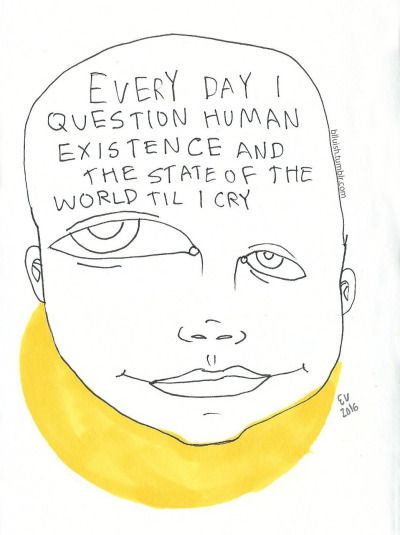 EVERY DAY I
QUESTION HUMAN
EXISTENCE AND
THE STATE OF THE
WORLD TIL I CRY
blluish.tumblr.com
EV
2016